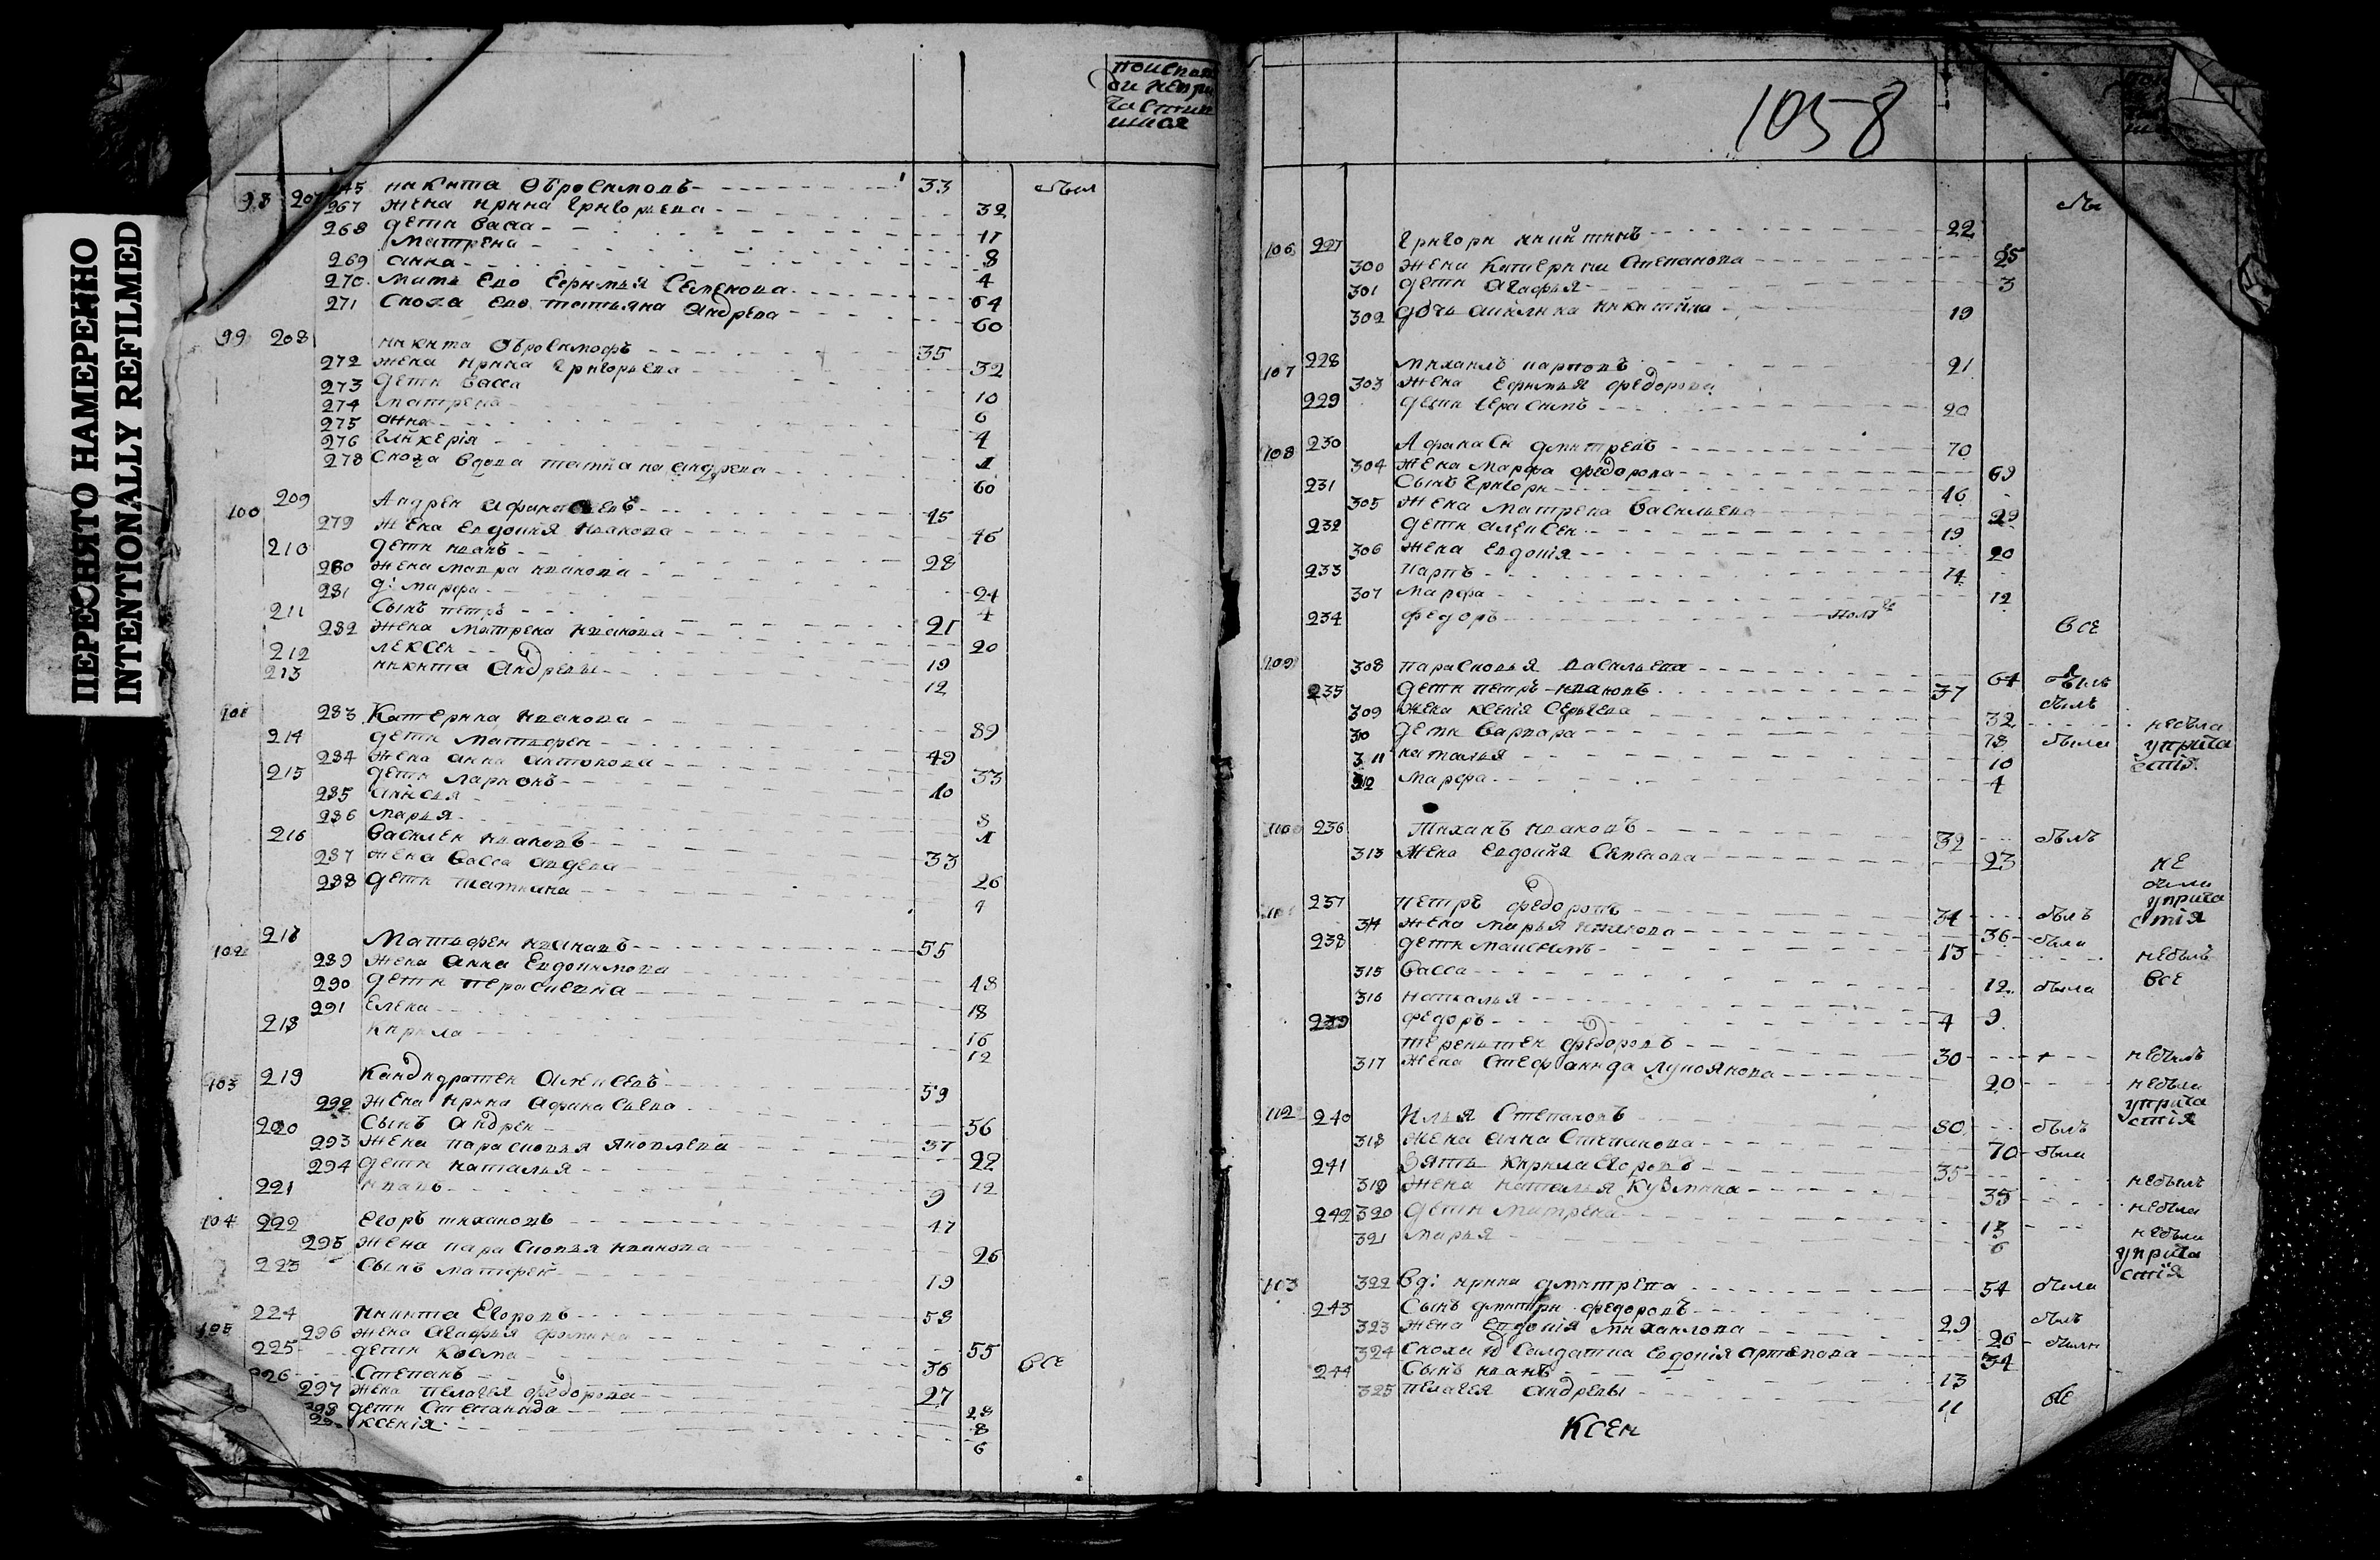 ПЕРЕСНЯТО НАМЕРЕННО
INTENTIONALLY REFILMED
98 207 никита Обросимовъ 33
267 жена ирина григорьева 32
268 дети васа 11
матрена 8
269 анна 4
270 мать Ево Ефимья Семенова 64
271 Сноха Ево татьяна андрева 60
99 208 никита Обросимофъ 35
272 жена ирина григорьева 32
273 дети васса 10
274 матрена 6
275 анна 4
276 гликеріа 1
278 Сноха вдова татиана андрева 60
100 209 Андреи афанасевъ 45
279 жена Евдокия иванова 46
210 дети иванъ 28
280 жена мавра иванова 24
281 д: марфа 4
211 Сынъ петръ 21
282 жена матрена иванова 20
212 лексеи 19
213 никита андревы 12
101 283 Катерина иванова 89
214 дети матвеи 49
284 жена анна антонова 33
215 дети ларионъ 10
285 анисья 8
286 марья 1
216 василеи ивановъ 33
287 жена васса авдева 26
288 дети татиана
102 217 Матвеи ивановъ 55
289 жена анна Евдокимова 48
290 дети 18
291 Елена 16
218 кирила 12
103 219 Кандратеи алексевъ 59
292 жена ирина афанасьева 56
220 Сынъ андреи 37
293 жена парасковья яковлева 22
294 дети наталья 12
221 иванъ 9
104 222 Егоръ тихановъ 47
295 жена парасковья иванова 26
223 Сынъ матвеи 19
105 224 никита Егоровъ 58
296 жена агафья фомина 55
225 дети косма 36 все
226 Степанъ 27
297 жена пелагея федорова 28
298 дети Степанида 8
ксения 6
1058
106 227 григори никитинъ 22
300 жена катерина степанова 25
301 дети агафья 3
302 дочь акилина никитина 19
107 228 михаилъ карповъ 21
303 жена Ефимья федорова
229 дети герасимъ 20
108 230 Афанаси дмитревъ 70
304 жена марфа федорова 69
231 Сынъ григори 46
305 жена матрена васильева 29
232 дети алексеи 19
306 жена евдокія 20
233 карпъ 14
307 марфа 12
234 федоръ все
109 308 парасковья васильева 64
235 дети петръ ивановъ 37 былъ
309 жена ксенія сергеева 32 небыла
310 дети варвара 13 была у прича
311 наталья 10 стія
312 марфа 4
110 236 Тиханъ ивановъ 32 былъ
313 жена евдокия семенова 23 не
были
у прича
стія
111 237 петръ федоровъ 34 былъ
314 жена марья 36 была
238 дети максимъ 13 небылъ
315 васса 12 была все
316 наталья 9
239 федоръ 4
терентеи федоровъ 30 небылъ
317 жена Стефанида лукоянова 20 небыла
у прича
стія
112 240 Илья Степановъ 80 былъ
318 жена анна Степанова 70 была
241 зять кирила егоровъ 35 небылъ
319 жена наталья кузмина 35 небыла
242 320 дети матрена 13 небыли
321 марья 6 у прича
стія
103 322 вд: ирина дмитрева 54 была
243 Сынъ дмитри федоровъ 29 былъ
323 жена евдокія михаилова 26 были
324 Сноха салдатка евдокія артемова 34
244 Сынъ иванъ 13
325 пелагея андревы 11 все
ксен